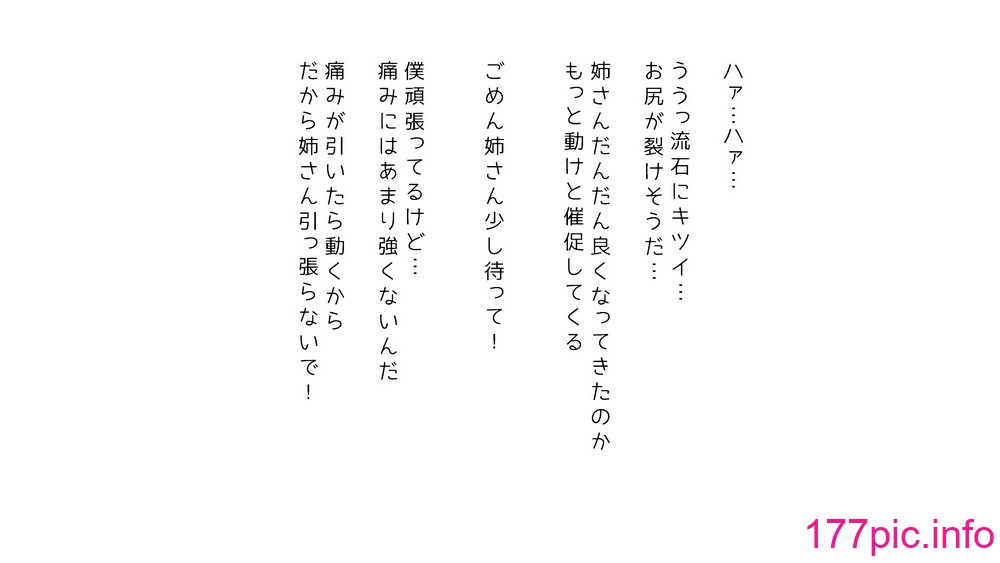 ハァ…ハァ…
ううっ流石にキツイ…
お尻が裂けそうだ…
姉さんだんだん良くなってきたのか
もっと動けと催促してくる
ごめん姉さん少し待って！
僕頑張ってるけど…
痛みにはあまり強くないんだ
痛みが引いたら動くから
だから姉さん引っ張らないで！
177pic.info